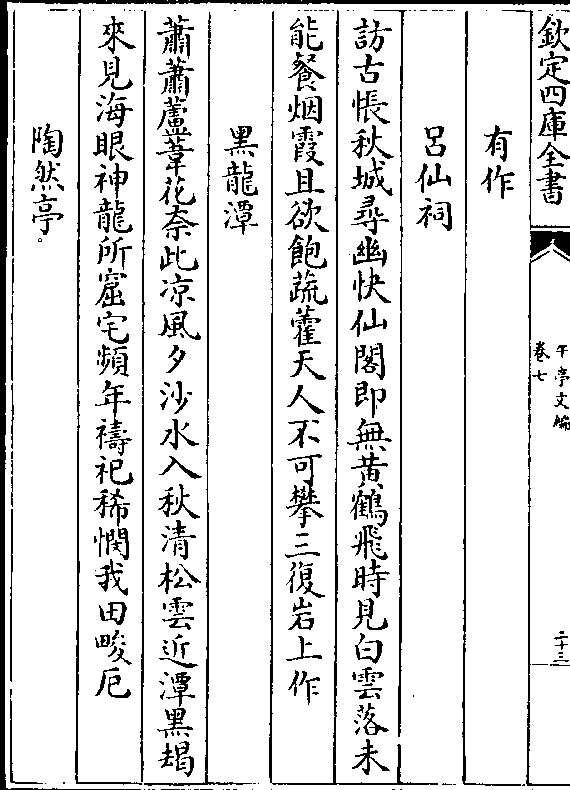 欽定四庫全書
午亭文編
卷七
二十三
有作
呂仙祠
訪古悵秋城尋幽快仙閣即無黃鶴飛時見白雲落未
能餐烟霞且欲飽蔬藿天人不可攀三復岩上作
黑龍潭
蕭蕭蘆葦花奈此凉風夕沙水入秋清松雲近潭黑朅
來見海眼神龍所窟宅頻年禱祀稀憫我田畯厄
陶然亭